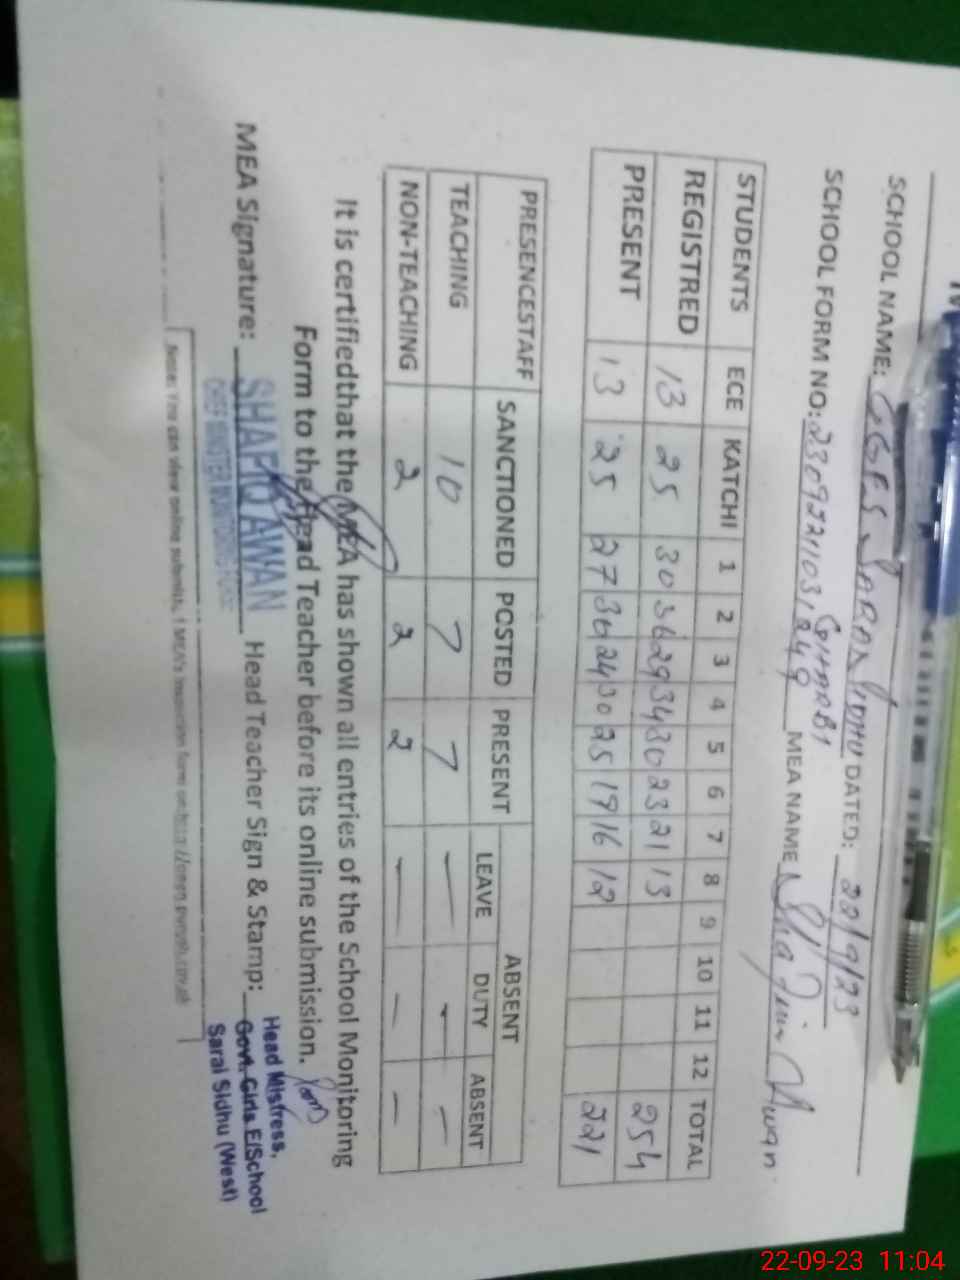 SCHOOL NAME: GGES SARAI SIDHU DATED: 22/9/23
GHARBI
SCHOOL FORM NO: 230922110312 49 MEA NAME Shafiq Awan
STUDENTS ECE KATCHI 1 2 3 4 5 6 7 8 9 10 11 12 TOTAL
REGISTRED 13 25 30 36 29 34 30 23 21 13 254
PRESENT 13 25 27 30 24 30 25 19 16 12 221
PRESENCESTAFF SANCTIONED POSTED PRESENT ABSENT
LEAVE DUTY ABSENT
TEACHING 10 7 7 — — —
NON-TEACHING 2 2 2 — — —
It is certifiedthat the MEA has shown all entries of the School Monitoring
Form to the Head Teacher before its online submission.
MEA Signature: Head Teacher Sign & Stamp:
SHAFIQ AWAN
Head Mistress,
Govt. Girls E/School
Sarai Sidhu (West)
Note: You can view online submitted
22-09-23 11:04